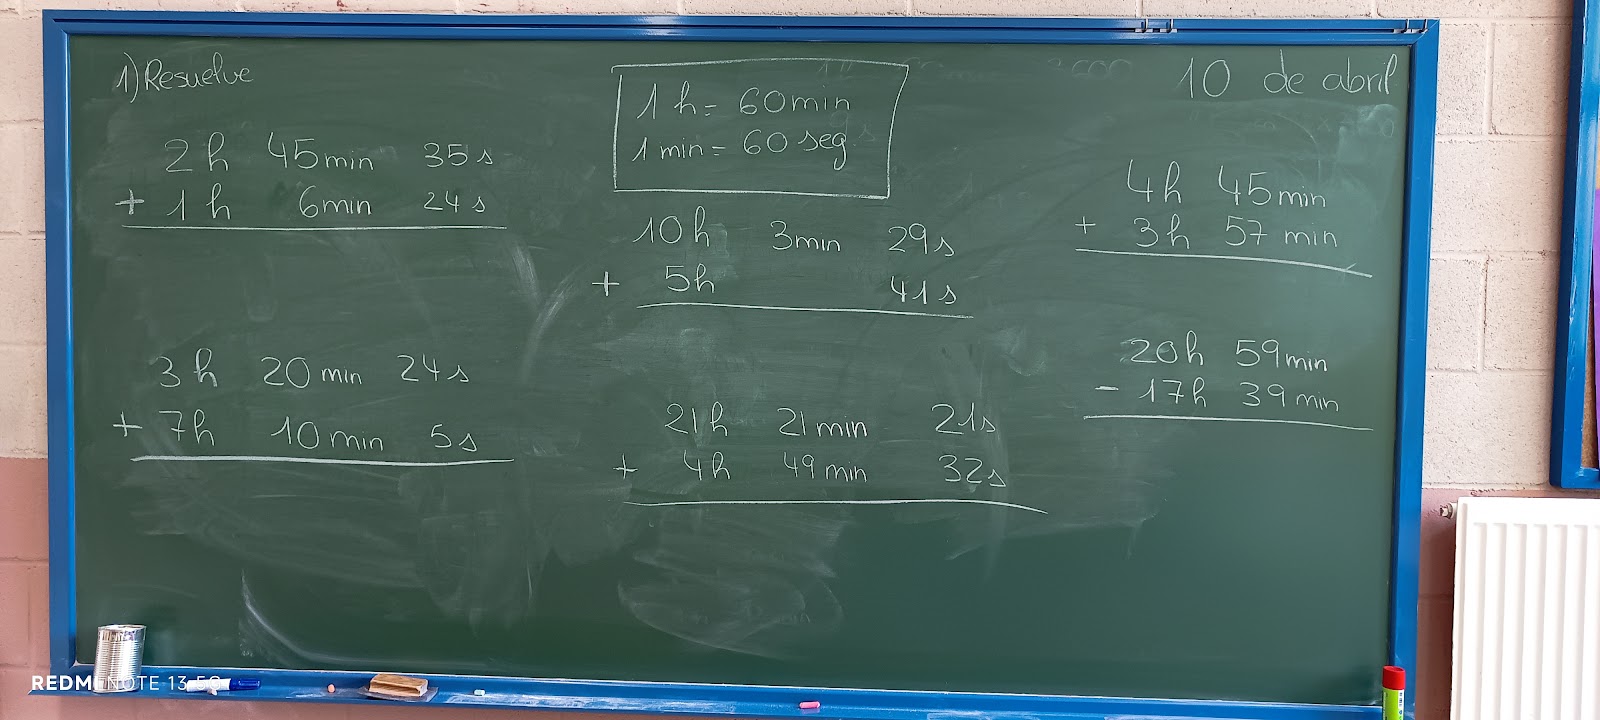 1) Resuelve
10 de abril
1 h = 60 min
1 min = 60 seg
2 h 45 min 35 s
+ 1 h 6 min 24 s
10 h 3 min 29 s
+ 5 h 41 s
4 h 45 min
+ 3 h 57 min
3 h 20 min 24 s
+ 7 h 10 min 5 s
21 h 21 min 21 s
+ 4 h 49 min 32 s
20 h 59 min
- 17 h 39 min
REDMI NOTE 13